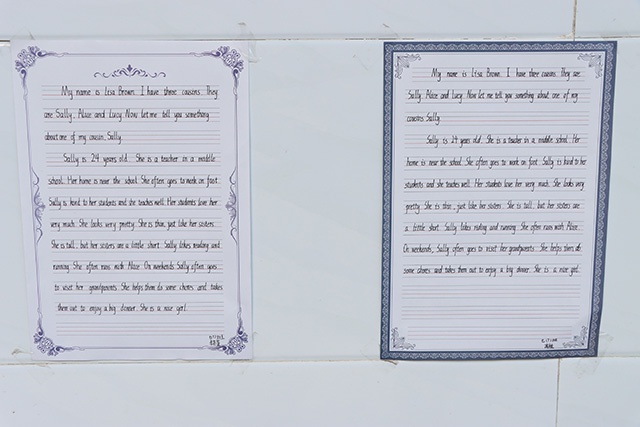 My name is Lisa Brown. I have three cousins. They
are Sally, Alice and Lucy. Now let me tell you something
about one of my cousin, Sally.
Sally is 24 years old. She is a teacher in a middle
school. Her home is near the school. She often goes to work on foot.
Sally is kind to her students and she teaches well. Her students love her
very much. She looks very pretty. She is thin, just like her sisters.
She is tall, but her sisters are a little short. Sally likes reading and
running. She often runs with Alice. On weekends, Sally often goes
to visit her grandparents. She helps them do some chores and takes
them out to enjoy a big dinner. She is a nice girl.
My name is Lisa Brown. I have three cousins. They are
Sally, Alice and Lucy. Now let me tell you something about one of my
cousins Sally.
Sally is 24 years old. She is a teacher in a middle school. Her
home is near the school. She often goes to work on foot. Sally is kind to her
students and she teaches well. Her students love her very much. She looks very
pretty. She is thin, just like her sisters. She is tall, but her sisters are
a little short. Sally likes reading and running. She often runs with Alice.
On weekends, Sally often goes to visit her grandparents. She helps them do
some chores and takes them out to enjoy a big dinner. She is a nice girl.